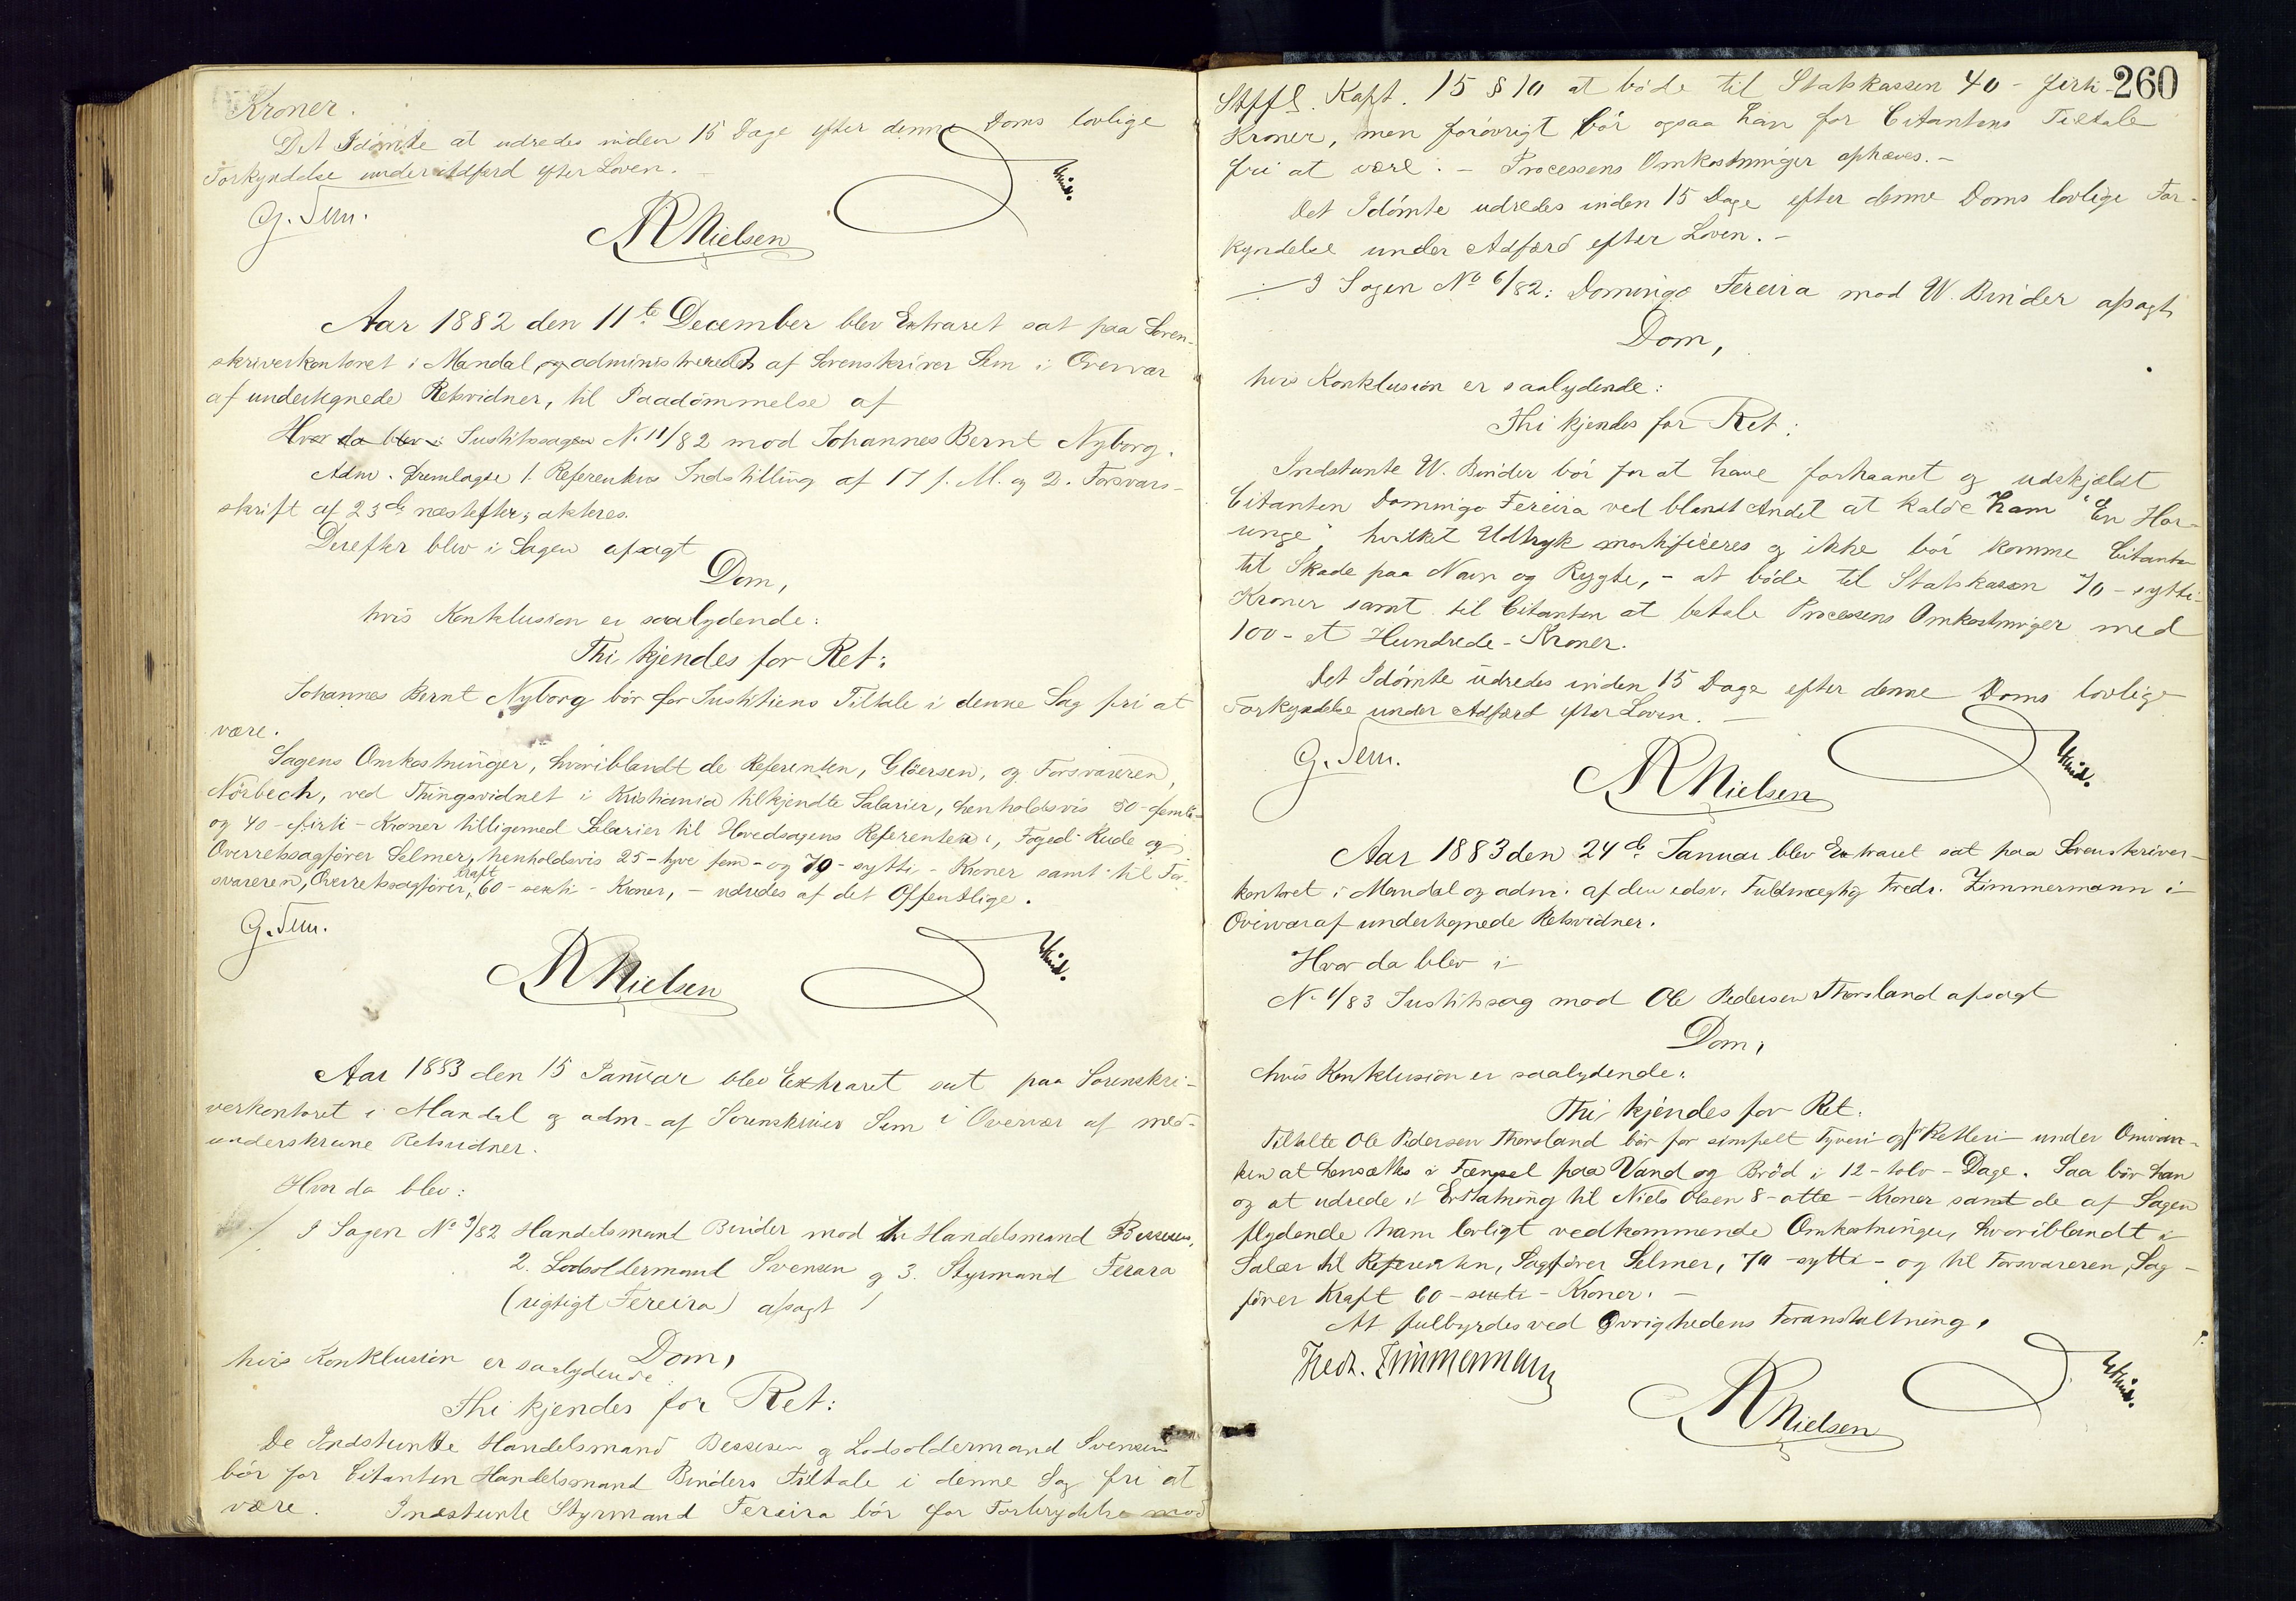 Kroner.
Det Idömte at udredes inden 15 Dage efter denne Doms lovlige
Forkyndelse under Adfærd efter Loven.
G. Sem.
NR Nielsen
Aar 1882 den 11te December blev Extraret sat paa Soren-
skriverkontoret i Mandal og administreredes af Sorenskriver Sem i Overvær
af undertegnede Retsvidner, til Paadömmelse af
Hvor da blev i Justitssagen N. 11/82 mod Johannes Bernt Nyborg.
Adm. fremlagde 1. Referentens Indstilling af 17 f. M. og 2. Forsvars-
skrift af 23de næstefter; akteres.
Derefter blev i Sagen afsagt
Dom,
hvis Konklusion er saalydende:
Thi kjendes for Ret:
Johannes Bernt Nyborg bör for Justitiens Tiltale i denne Sag fri at
være.
Sagens Omkostninger, hvoriblandt de Referenten, Glöersen, og Forsvareren,
Nörbech, ved Thingsvidnet i Kristiania tilkjendte Salarier, henholdsvis 50 - femti -
og 40 - firti - Kroner tilligemed Salarier til Hovedsagens Referenter, Foged Rude og
Overretssagförer Selmer, henholdsvis 25 - tyve fem - og 70 - sytti - Kroner samt til For-
svareren, Overretssagförer Kraft, 60 - sexti - Kroner, - udredes af det Offentlige.
G. Sem.
NR Nielsen
Aar 1883 den 15 Januar blev Extraret sat paa Sorenskri-
verkontoret i Mandal og adm. af Sorenskriver Sem i Overvær af med-
underskrevne Retsvidner.
Hvor da blev:
I Sagen No 9/82 Handelsmand Binder mod 1. Handelsmand Bessesen,
2. Lodsoldermand Svensen og 3. Styrmand Ferara
(rigtigt Fereira) afsagt
Dom,
hvis Konklusion er saalydende:
Thi kjendes for Ret:
De Indstevnte Handelsmand Bessesen og Lodsoldermand Svensen
bör for Citanten Handelsmand Binders Tiltale i denne Sag fri at
være. Indstevnte Styrmand Fereira bör for Forbrydelse mod
260
Stffl. Kapt. 15 § 10 at böde til Statskassen 40 - firti -
Kroner, men forövrigt bör ogsaa han for Citantens Tiltale
fri at være. - Processens Omkostninger ophæves. -
Det Idömte udredes inden 15 Dage efter denne Doms lovlige For-
kyndelse under Adfærd efter Loven. -
I Sagen No 6/82: Domingo Fereira mod W. Binder afsagt
Dom,
hvis Konklusion er saalydende:
Thi kjendes for Ret:
Indstevnte W. Binder bör for at have forhaanet og udskjeldt
Citanten Domingo Fereira ved blandt Andet at kalde ham "En Hor-
unge", hvilket Udtryk mortificeres og ikke bör komme Citanten
til Skade paa Navn og Rygte, - at böde til Statskassen 70 - sytti -
Kroner samt til Citanten at betale Processens Omkostninger med
100 - et Hundrede - Kroner.
Det Idömte udredes inden 15 Dage efter denne Doms lovlige
Forkyndelse under Adfærd efter Loven. -
G. Sem.
NR Nielsen
Aar 1883 den 24de Januar blev Extraret sat paa Sorenskriver-
kontoret i Mandal og adm. af den edsv. Fuldmægtig Fredr. Zimmermann i
Overvær af undertegnede Retsvidner.
Hvor da blev i
N. 1/83 Justitssag mod Ole Pedersen Thorsland afsagt
Dom,
hvis Konklusion er saalydende:
Thi kjendes for Ret:
Tiltalte Ole Pedersen Thorsland bör for simpelt Tyveri og for Betleri under Omvan-
ken at hensættes i Fængsel paa Vand og Bröd i 12 - tolv - Dage. Saa bör han
og at udrede i Erstatning til Niels Olsen 8 - otte - Kroner samt de af Sagen
flydende ham lovligt vedkommende Omkostninger, hvoriblandt i
Salær til Referenten, Sagförer Selmer, 70 - sytti - og til Forsvareren, Sag-
förer Kraft 60 - sexti - Kroner. -
At fulbyrdes ved Övrighedens Foranstaltning.
Fredr. Zimmermann
NR Nielsen